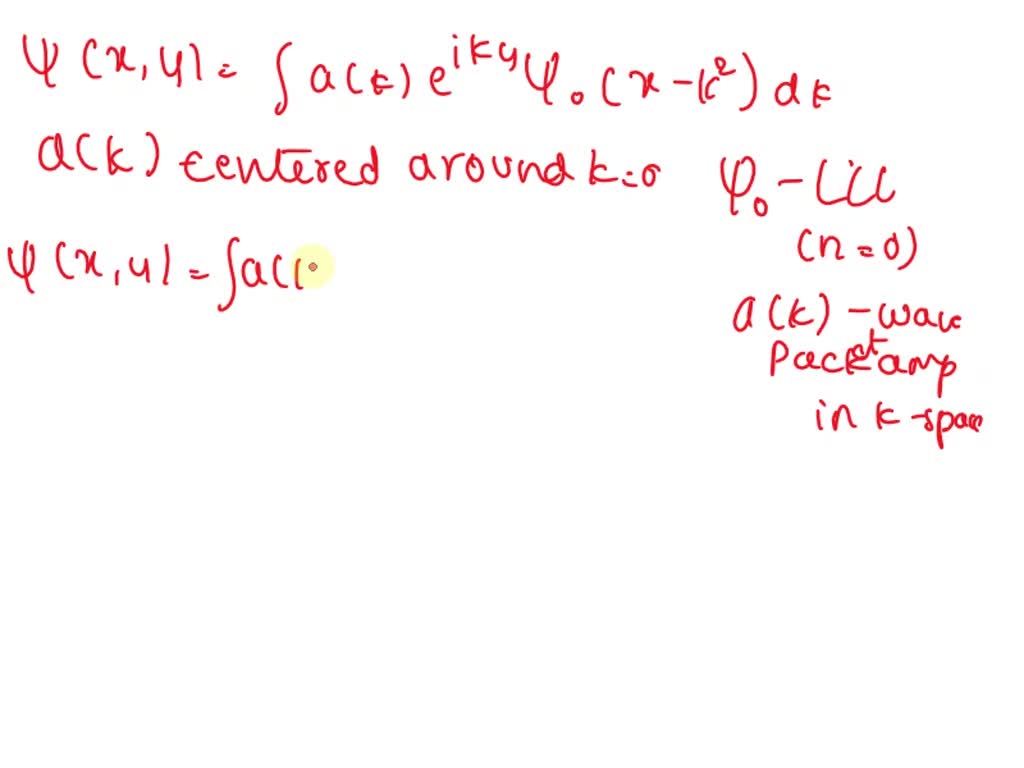 ψ(x,y) = ∫ a(k) e^{iky} φ₀ (x-k²) dk
a(k) centered around k=0
φ₀ -
(n=0)
ψ(x,y) = ∫a(
a(k) - wave
Packet amp
in k-space